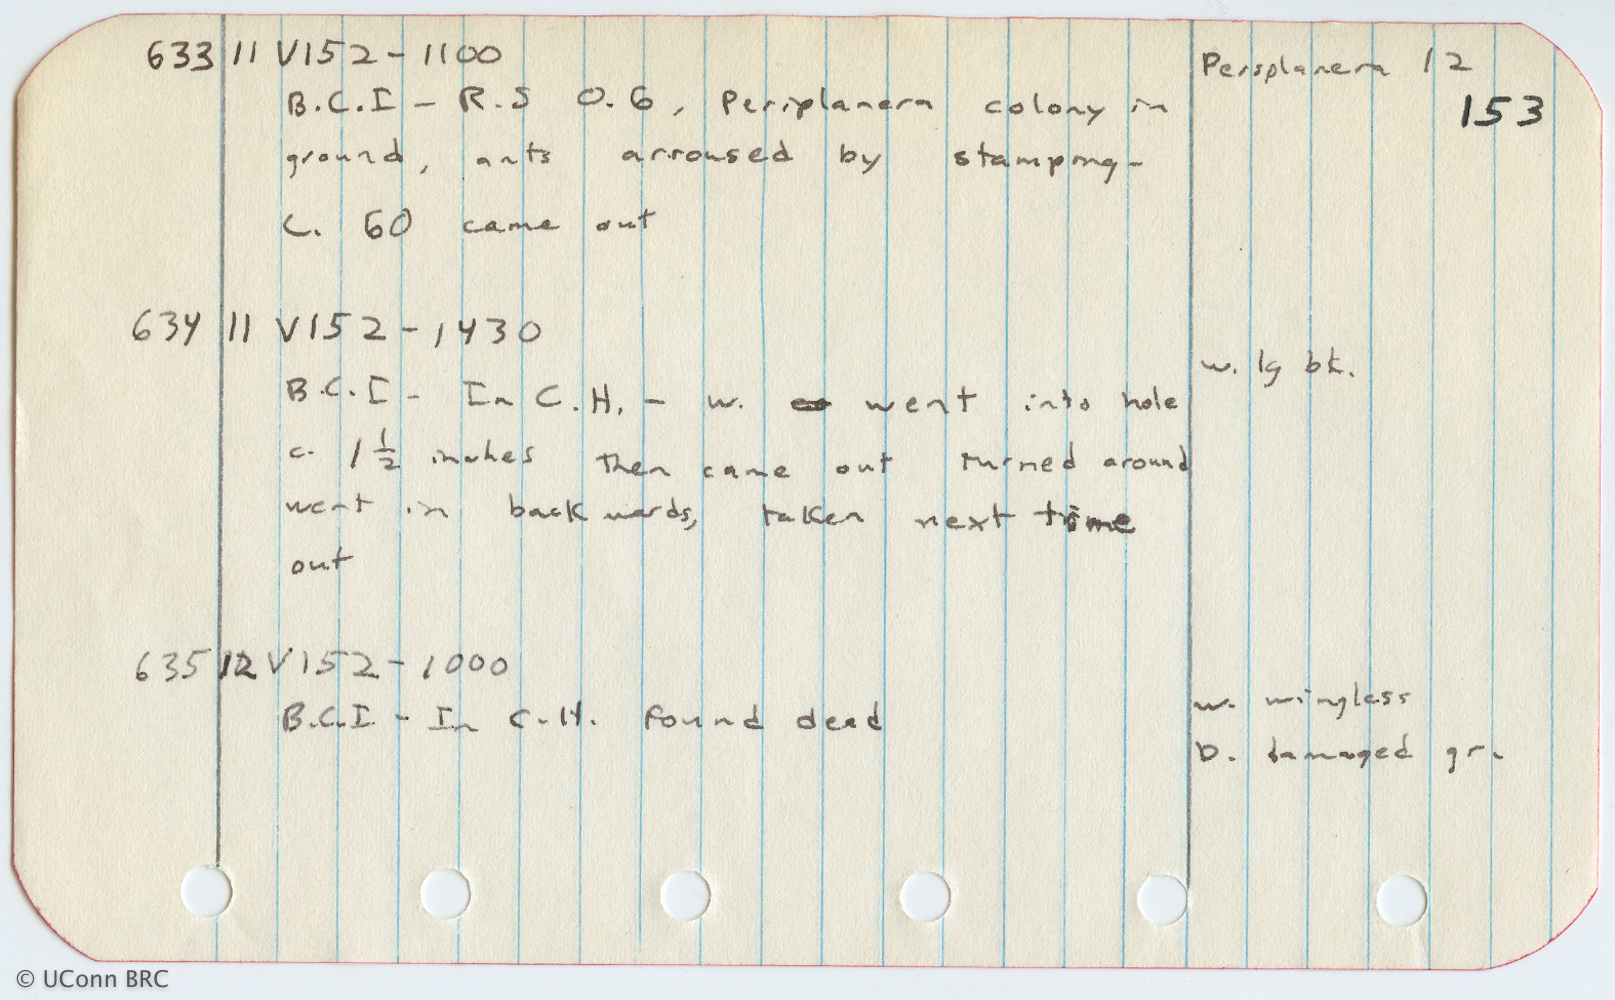 633 11 V 152 - 1100
Periplanera 12
153
B.C.I - R.S O.6, Periplanera colony in
ground, ants arroused by stamping -
C. 60 came out
634 11 V 152 - 1430
w. lg bk.
B.C.I - In C.H. - w. went into hole
c. 1 1/2 inches then came out turned around
went in backwards, taken next time
out
635 12 V 152 - 1000
w. wingless
B.C.I - In C.H. found dead
D. damaged gr.
© UConn BRC